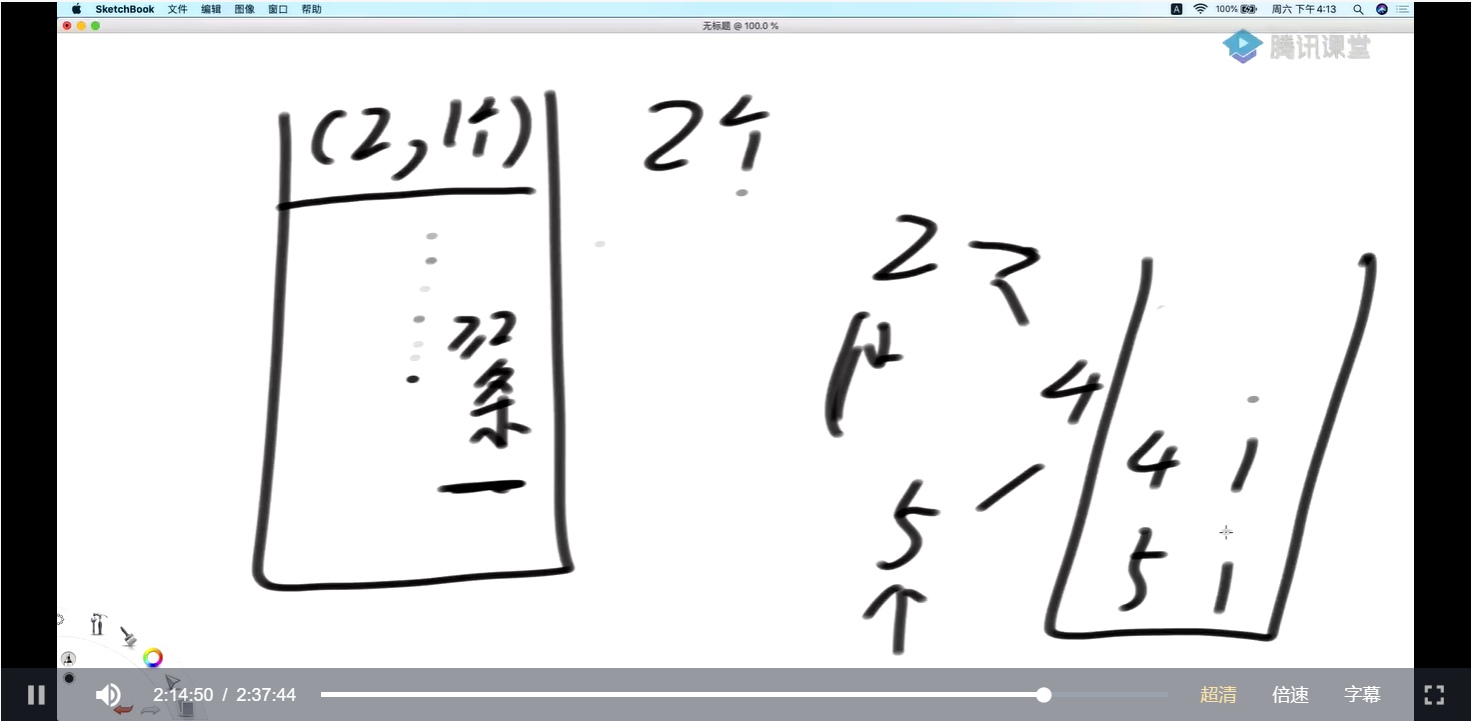 SketchBook 文件 编辑 图像 窗口 帮助
A 100% 周六 下午4:13
无标题 @ 100.0 %
腾讯课堂
(2, 1个) 2个
2
4
4 1
5
5 1
2:14:50 / 2:37:44
超清 倍速 字幕